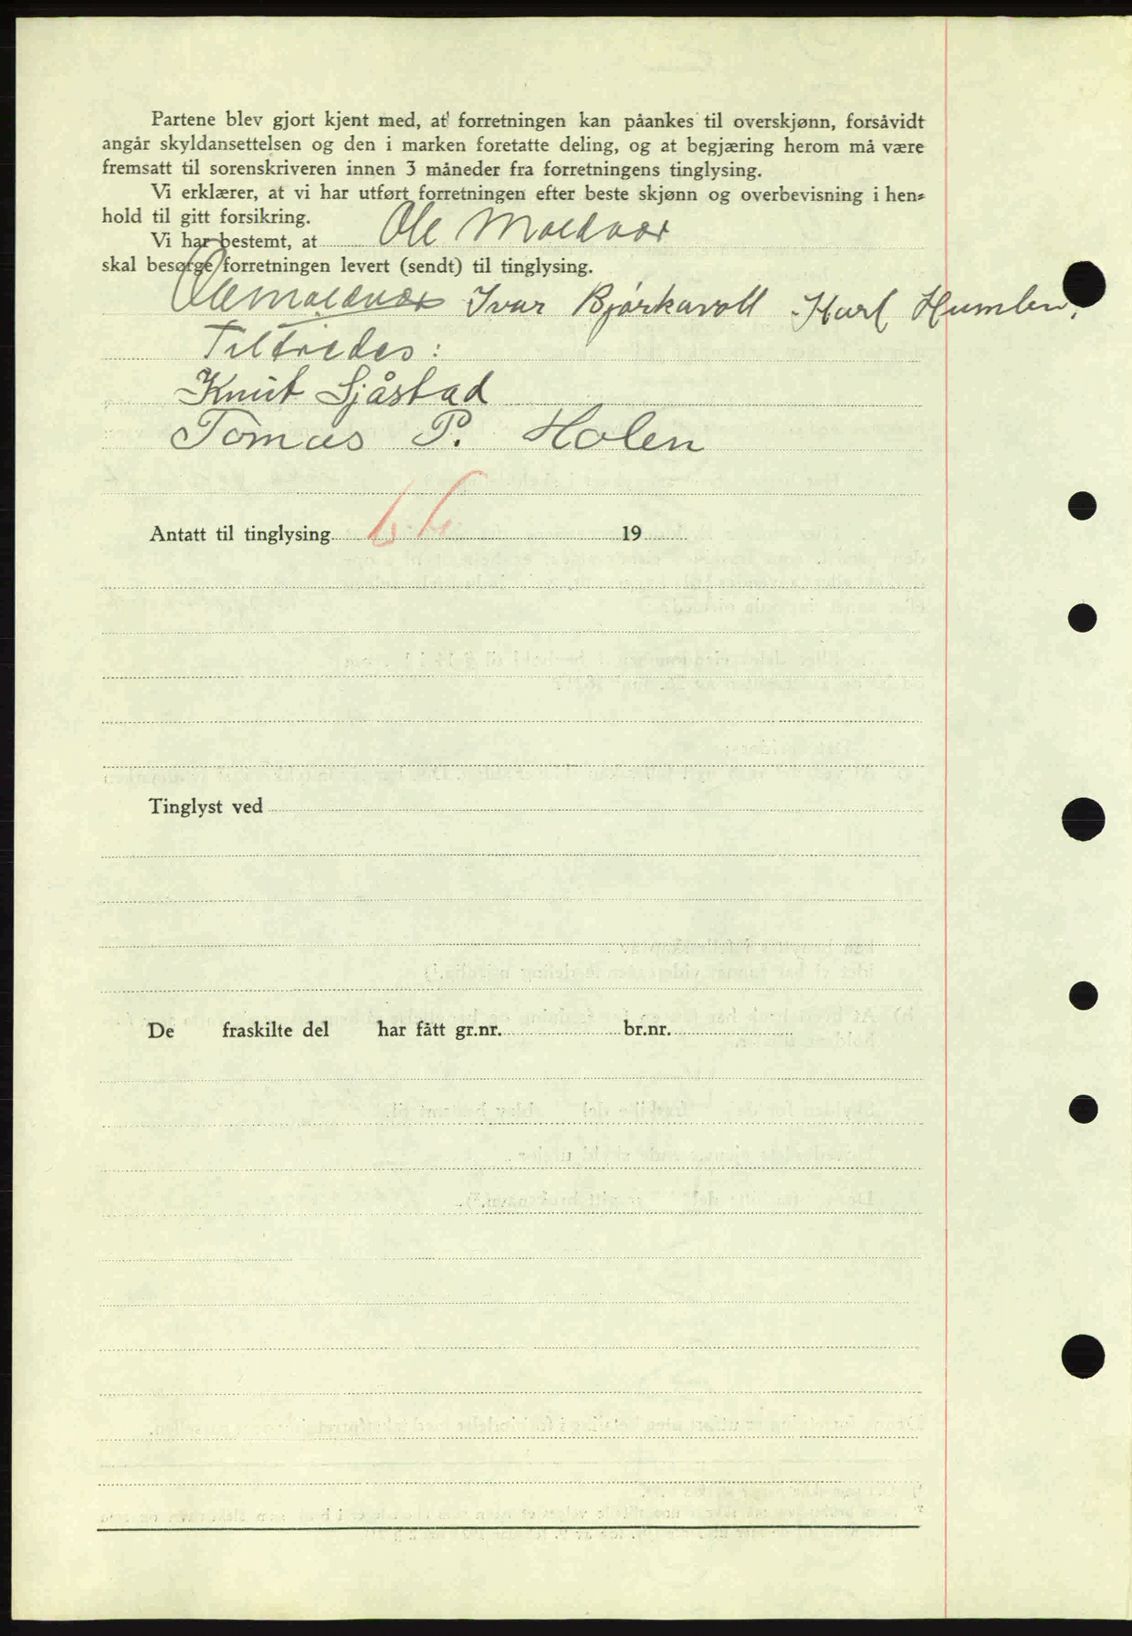 Partene blev gjort kjent med, at forretningen kan påankes til overskjønn, forsåvidt
angår skyldansettelsen og den i marken foretatte deling, og at begjæring herom må være
fremsatt til sorenskriveren innen 3 måneder fra forretningens tinglysing.
Vi erklærer, at vi har utført forretningen efter beste skjønn og overbevisning i hen-
hold til gitt forsikring.
Vi har bestemt, at Ole Moldvær
skal besørge forretningen levert (sendt) til tinglysing.
Ole Moldvær Ivar Bjørkavoll Karl Humlen.
Tiltredes:
Knut Sjåstad
Tomas P. Holen
Antatt til tinglysing 19
Tinglyst ved
De fraskilte del har fått gr.nr. br.nr.